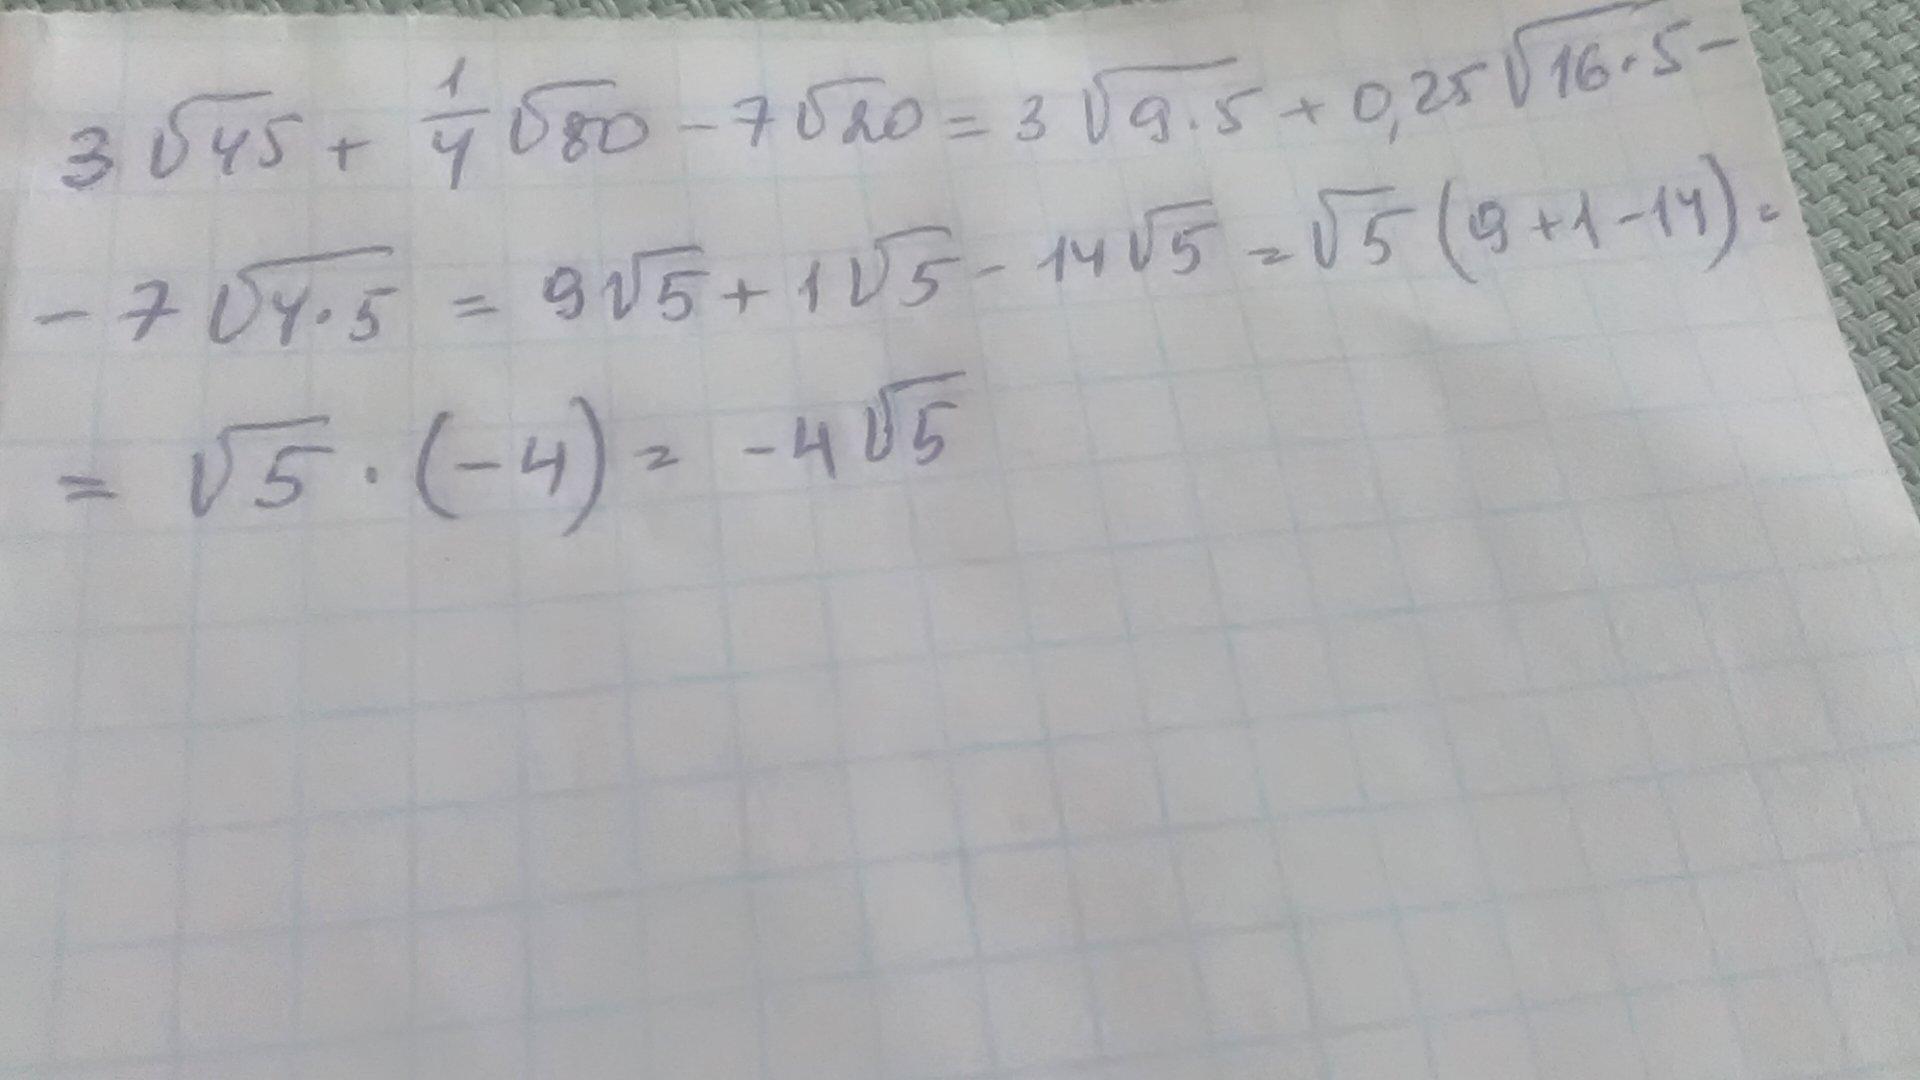 3√45 + 1/4 √80 - 7√20 = 3√9·5 + 0,25√16·5 -
- 7√4·5 = 9√5 + 1√5 - 14√5 = √5 (9+1-14) =
= √5 · (-4) = -4√5